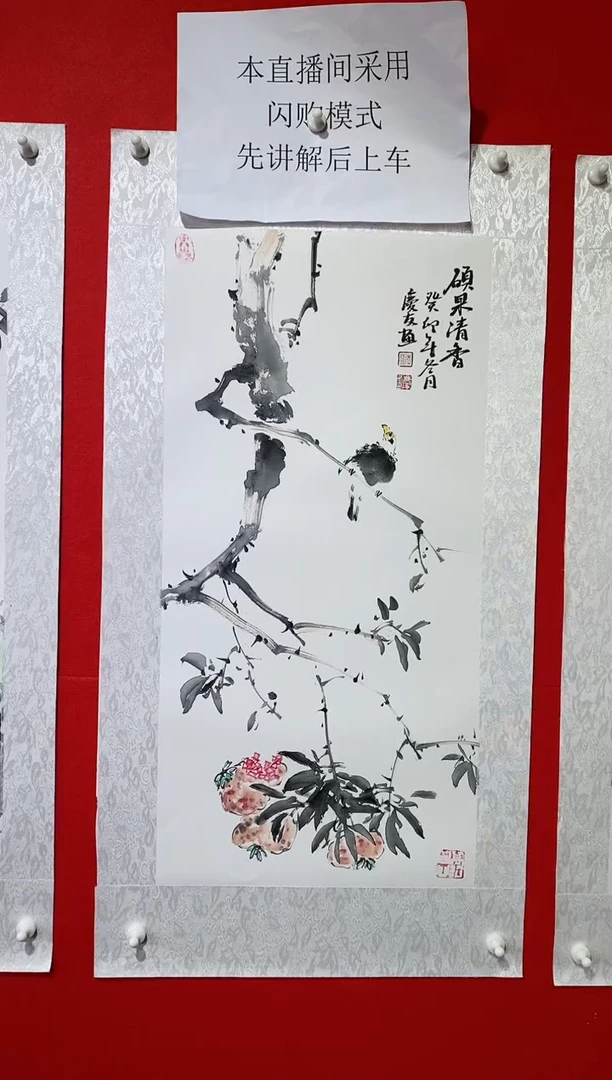 本直播间采用
闪购模式
先讲解后上车
硕果清香
癸卯年冬月
庆友画